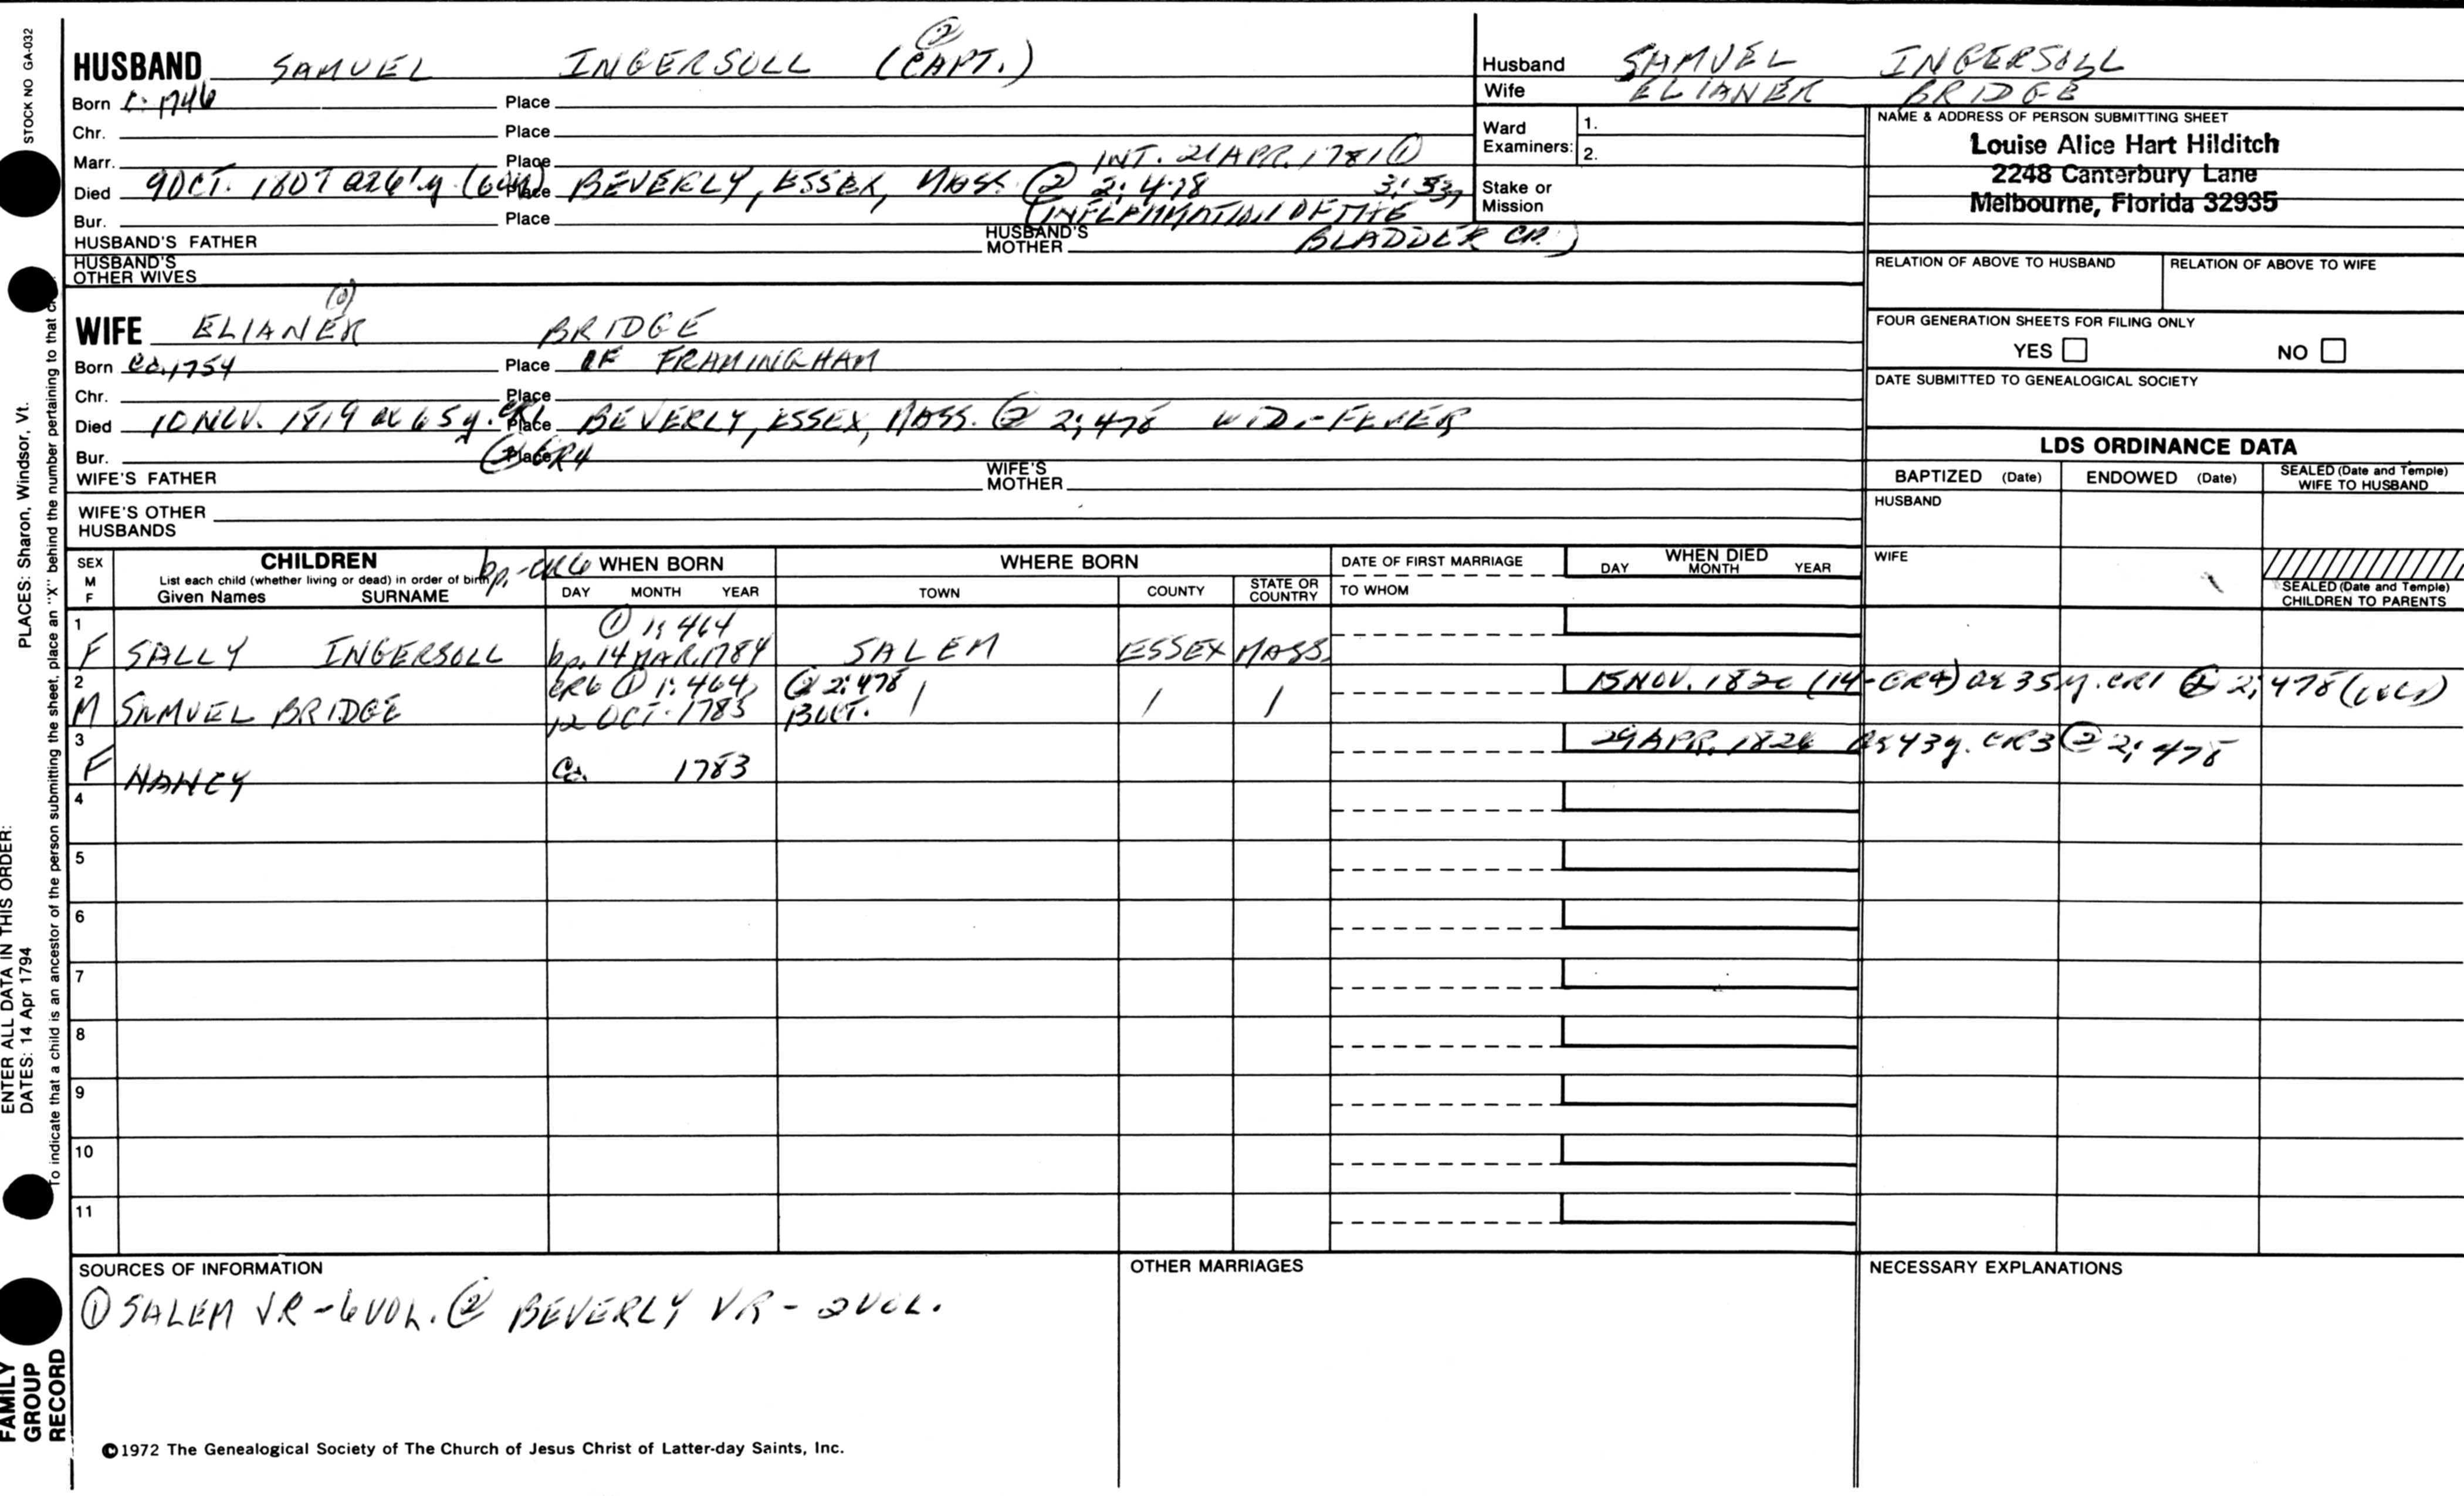 STOCK NO GA-032
HUSBAND SAMUEL INGERSOLL (CAPT.) ②
Born c. 1746 Place
Chr. Place
Marr. Place INT. 21 APR. 1781 ①
3:
Died 9 OCT. 1807 Place BEVERLY, ESSEX, MASS. ② 2:478
Bur. Place (INFLAMMATION OF THE
BLADDER
HUSBAND'S FATHER HUSBAND'S MOTHER
HUSBAND'S OTHER WIVES
WIFE ELIANER BRIDGE
Born ca. 1754 Place OF FRAMINGHAM
Chr. Place
Died 10 NOV. 1819 ae 65y. Place BEVERLY, ESSEX, MASS. ② 2:478 WID. - FEVER
Bur. Place GR4
WIFE'S FATHER WIFE'S MOTHER
WIFE'S OTHER HUSBANDS
Husband SAMUEL INGERSOLL
Wife ELIANER BRIDGE
Ward Examiners: 1.
2.
Stake or Mission
NAME & ADDRESS OF PERSON SUBMITTING SHEET
Louise Alice Hart Hilditch
2248 Canterbury Lane
Melbourne, Florida 32935
RELATION OF ABOVE TO HUSBAND RELATION OF ABOVE TO WIFE
FOUR GENERATION SHEETS FOR FILING ONLY
YES NO
DATE SUBMITTED TO GENEALOGICAL SOCIETY
LDS ORDINANCE DATA
BAPTIZED (Date) ENDOWED (Date) SEALED (Date and Temple) WIFE TO HUSBAND
HUSBAND
WIFE
SEALED (Date and Temple) CHILDREN TO PARENTS
SEX M F
CHILDREN
List each child (whether living or dead) in order of birth
Given Names SURNAME
bp.-CR6
WHEN BORN
DAY MONTH YEAR
WHERE BORN
TOWN COUNTY STATE OR COUNTRY
DATE OF FIRST MARRIAGE
TO WHOM
WHEN DIED
DAY MONTH YEAR
1 ① 1:464
F SALLY INGERSOLL bp. 14 MAR. 1784 SALEM ESSEX MASS.
2 CR6 ① 1:464, ② 2:478 15 NOV. 1820 (14-GR4) ae 35y. CR1 ② 2:478
M SAMUEL BRIDGE 12 OCT. 1783 / / /
3 29 APR. 1826 ae 43y. CR3 ② 2:478
F NANCY Ca. 1783
4
5
6
7
8
9
10
11
SOURCES OF INFORMATION
① SALEM VR - 6 VOL. ② BEVERLY VR - 2 VOL.
OTHER MARRIAGES
NECESSARY EXPLANATIONS
©1972 The Genealogical Society of The Church of Jesus Christ of Latter-day Saints, Inc.
FAMILY GROUP RECORD
ENTER ALL DATA IN THIS ORDER:
DATES: 14 Apr 1794
PLACES: Sharon, Windsor, Vt.
To indicate that a child is an ancestor of the person submitting the sheet, place an "X" behind the number pertaining to that